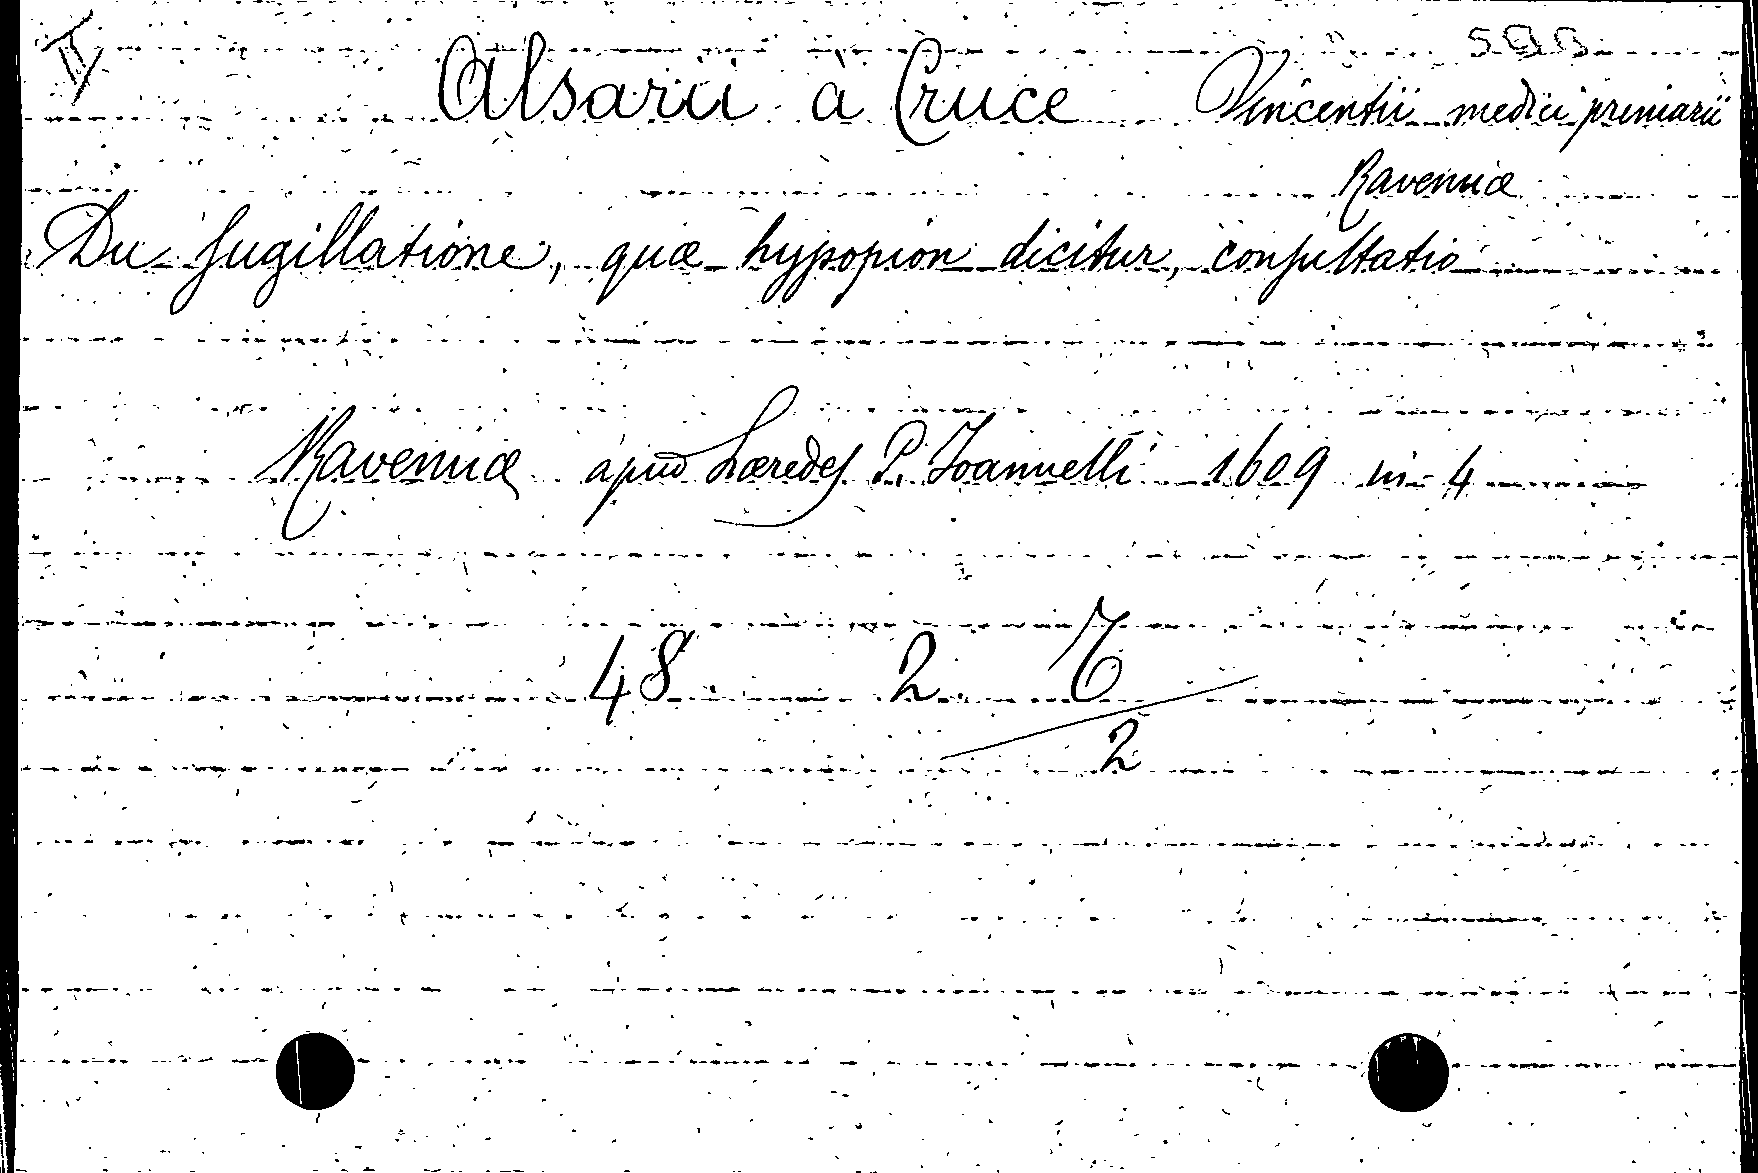 II
Alsarii a Cruce Vincentii medici primarii
Ravennæ
De sugillatione, quæ hypopion dicitur, consultatio
Ravennæ apud hæredes P. Ioannelli 1609 in 4
48 2 6
2